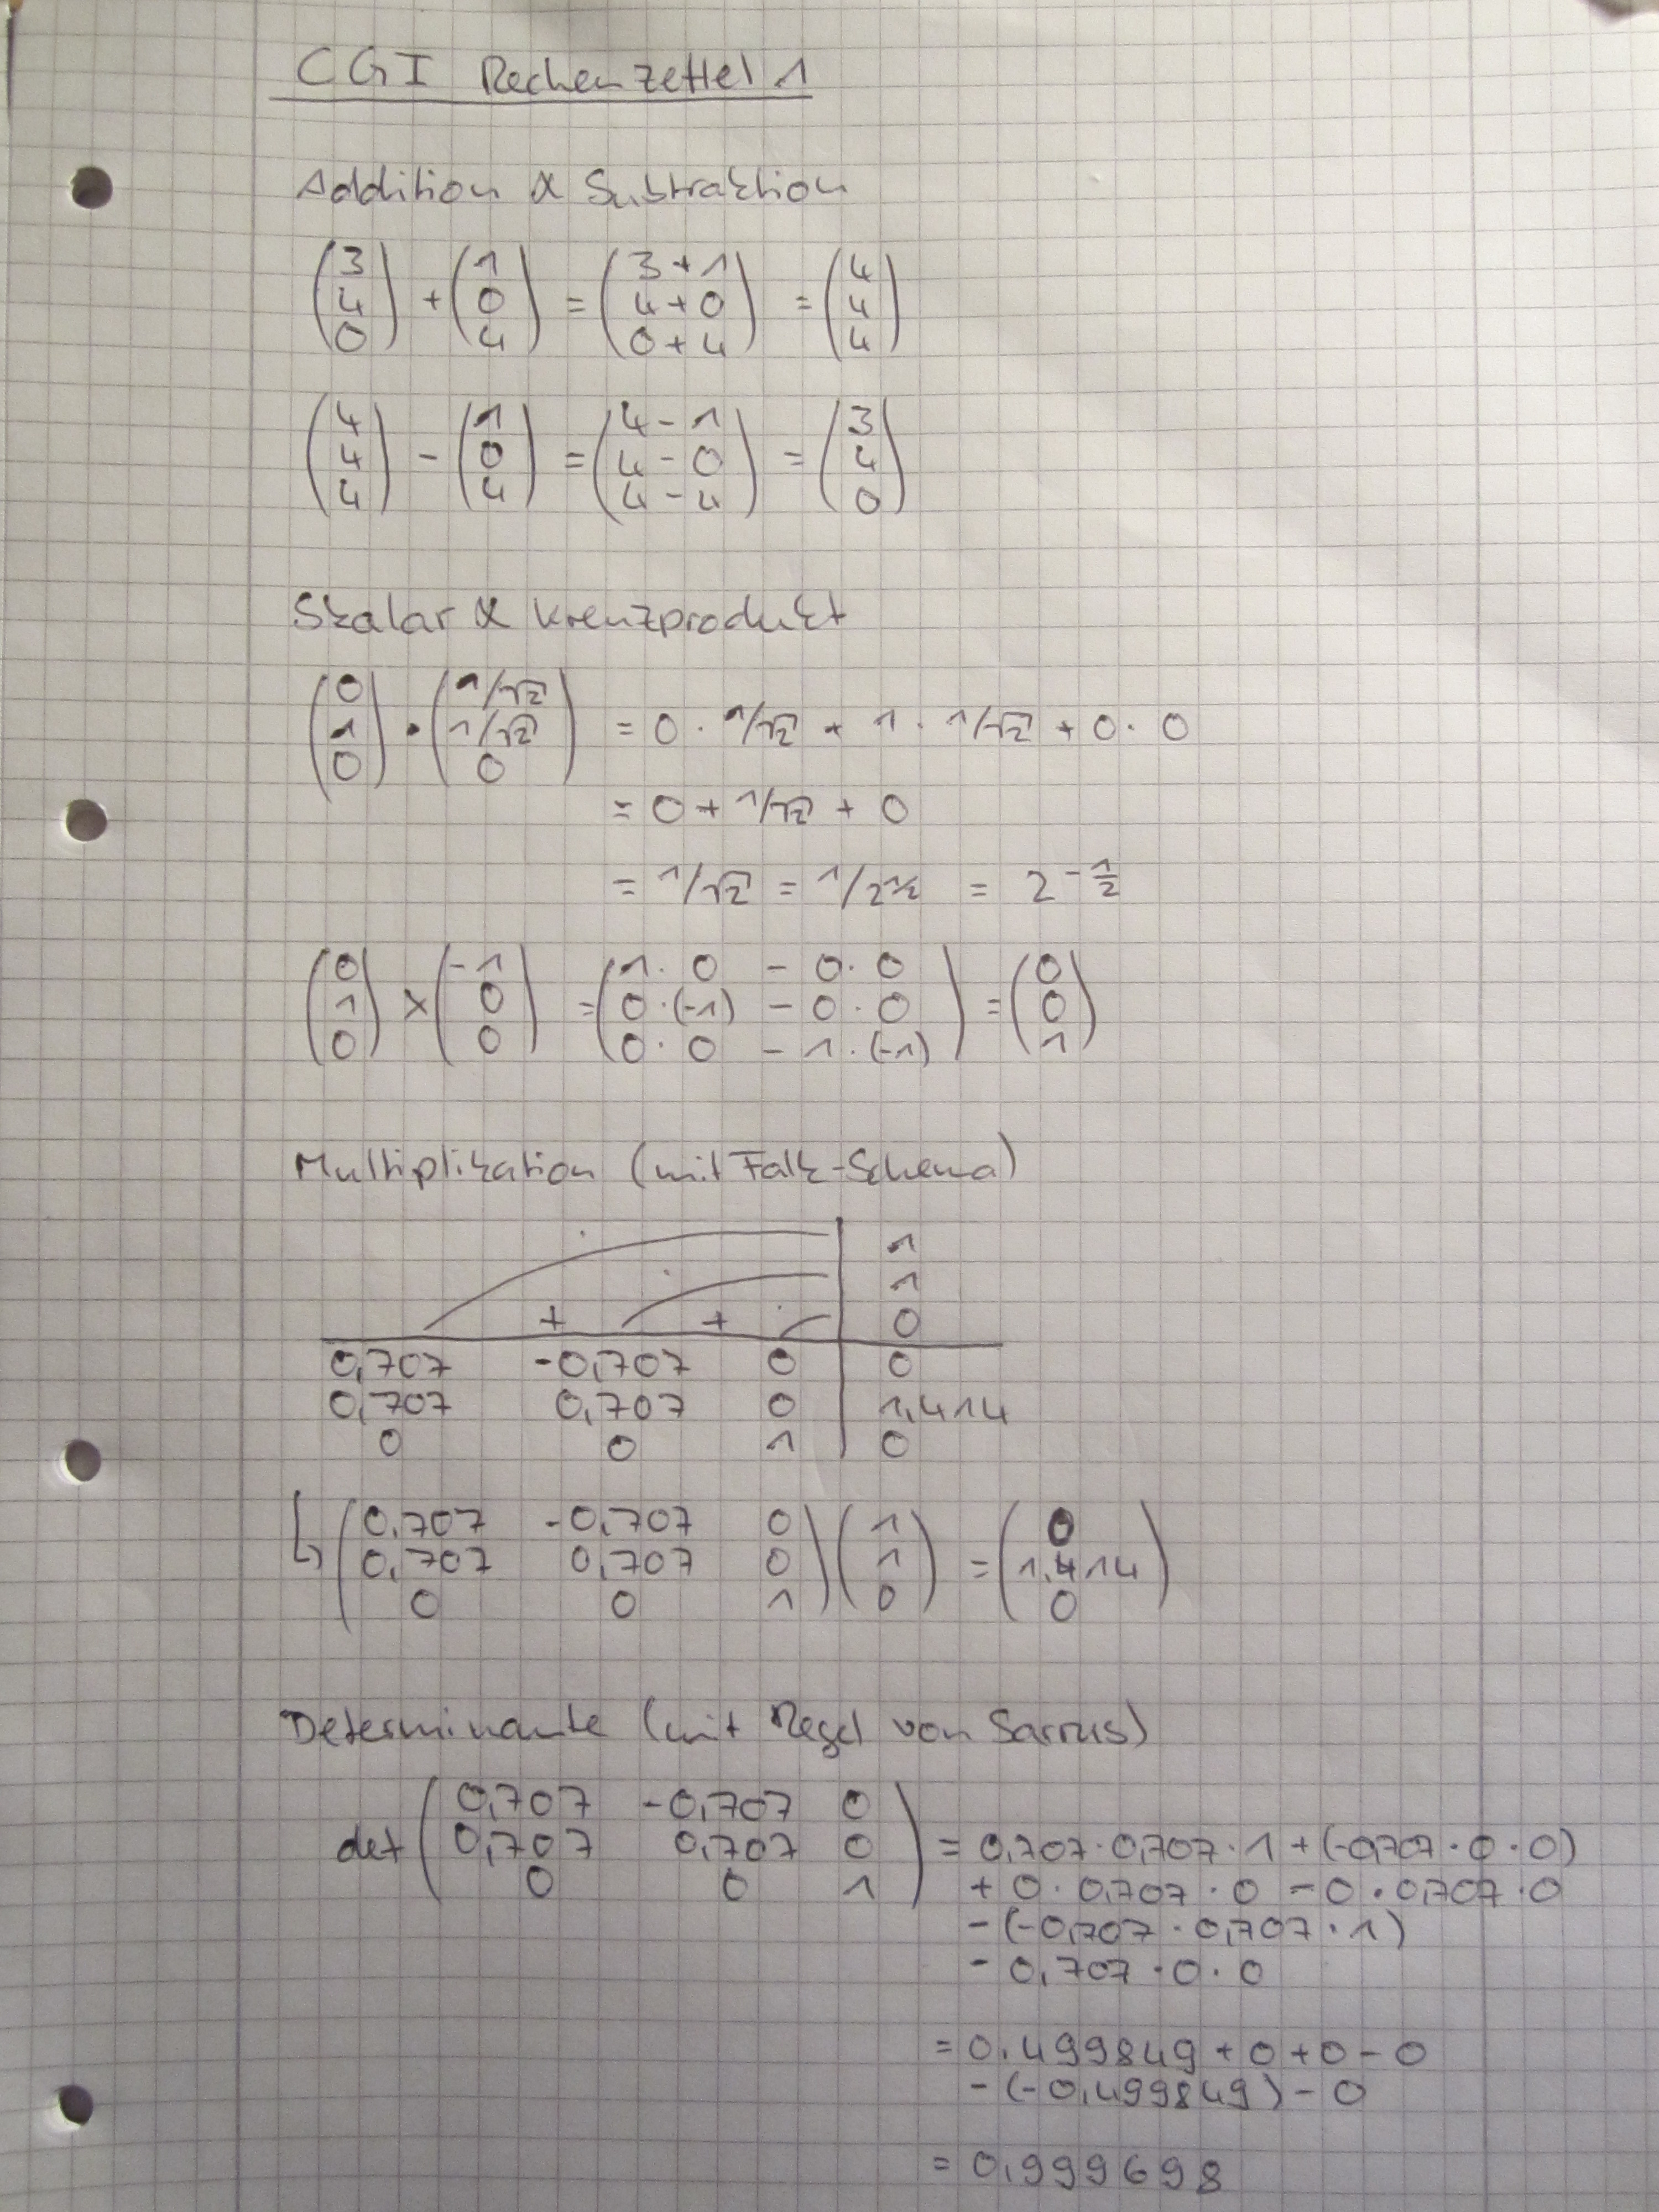 CGI Rechenzettel 1
Addition & Subtraktion
(3 4 0) + (1 0 4) = (3+1 4+0 0+4) = (4 4 4)
(4 4 4) - (1 0 4) = (4-1 4-0 4-4) = (3 4 0)
Skalar & Kreuzprodukt
(0 1 0) · (1/√2 1/√2 0) = 0 · 1/√2 + 1 · 1/√2 + 0 · 0
= 0 + 1/√2 + 0
= 1/√2 = 1/2^½ = 2^-½
(0 1 0) × (-1 0 0) = (1·0 - 0·0 0·(-1) - 0·0 0·0 - 1·(-1)) = (0 0 1)
Multiplikation (mit Falk-Schema)
1
1
+ + 0
0,707 -0,707 0 0
0,707 0,707 0 1,414
0 0 1 0
↳ (0,707 -0,707 0 0,707 0,707 0 0 0 1) (1 1 0) = (0 1,414 0)
Determinante (mit Regel von Sarrus)
det (0,707 -0,707 0 0,707 0,707 0 0 0 1) = 0,707 · 0,707 · 1 + (-0,707 · 0 · 0)
+ 0 · 0,707 · 0 - 0 · 0,707 · 0
- (-0,707 · 0,707 · 1)
- 0,707 · 0 · 0
= 0,499849 + 0 + 0 - 0
- (-0,499849) - 0
= 0,999698